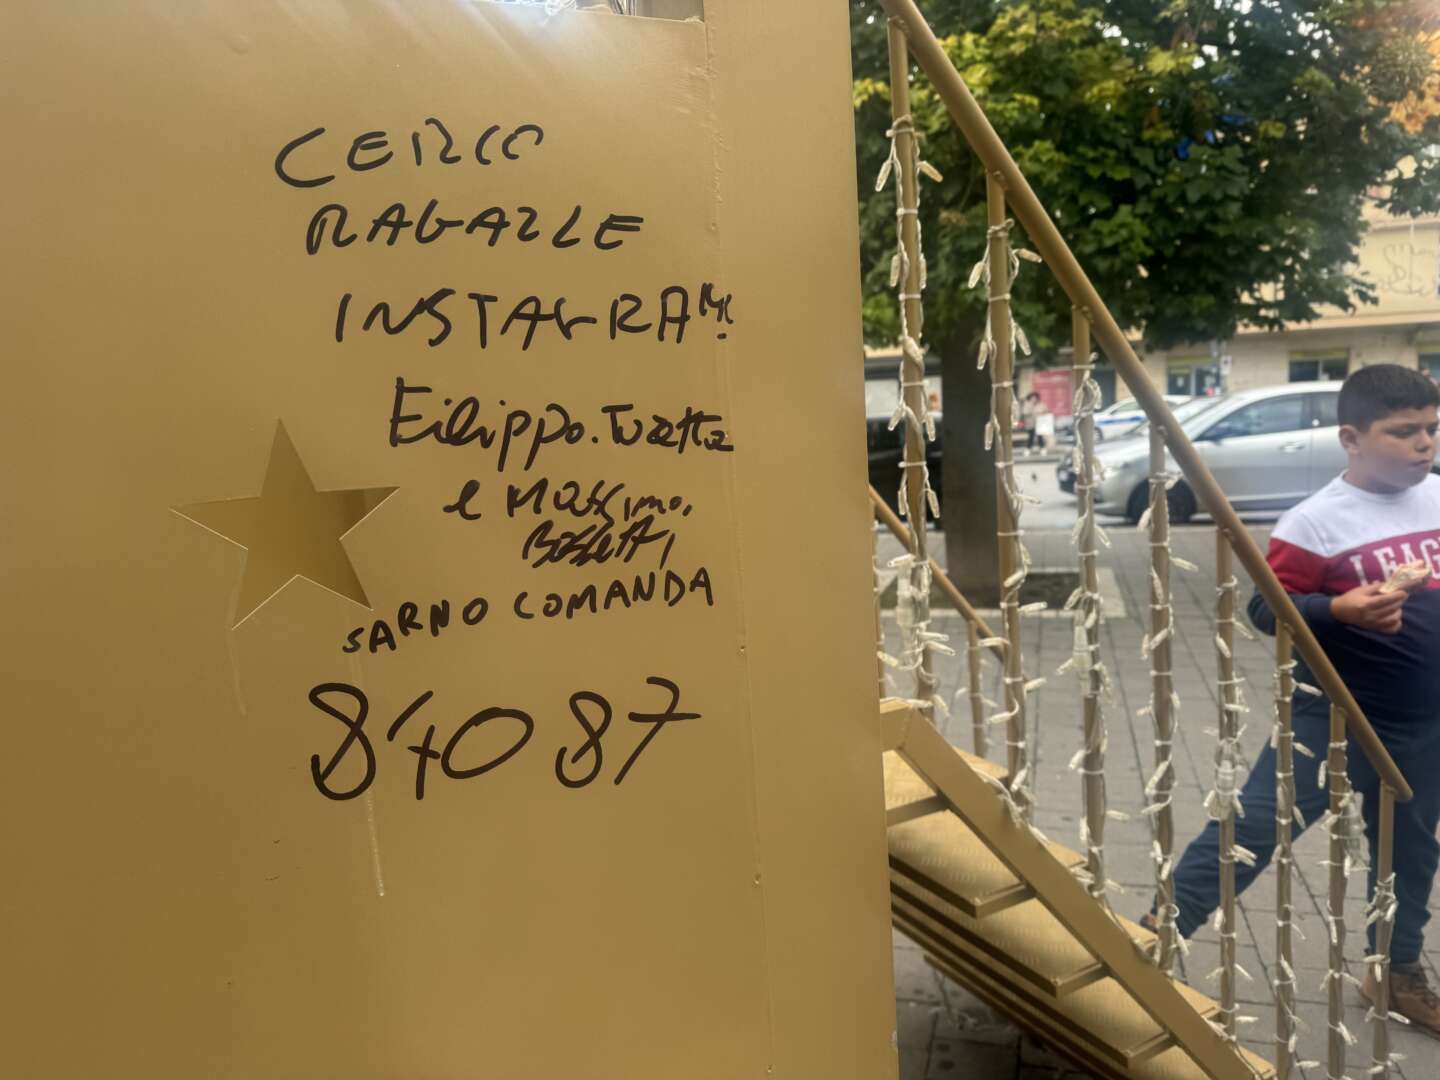 CERCO
RAGAZZE
INSTAGRAM:
Filippo.Tuatta
e Massimo.
SARNO COMANDA
84087
LEAG